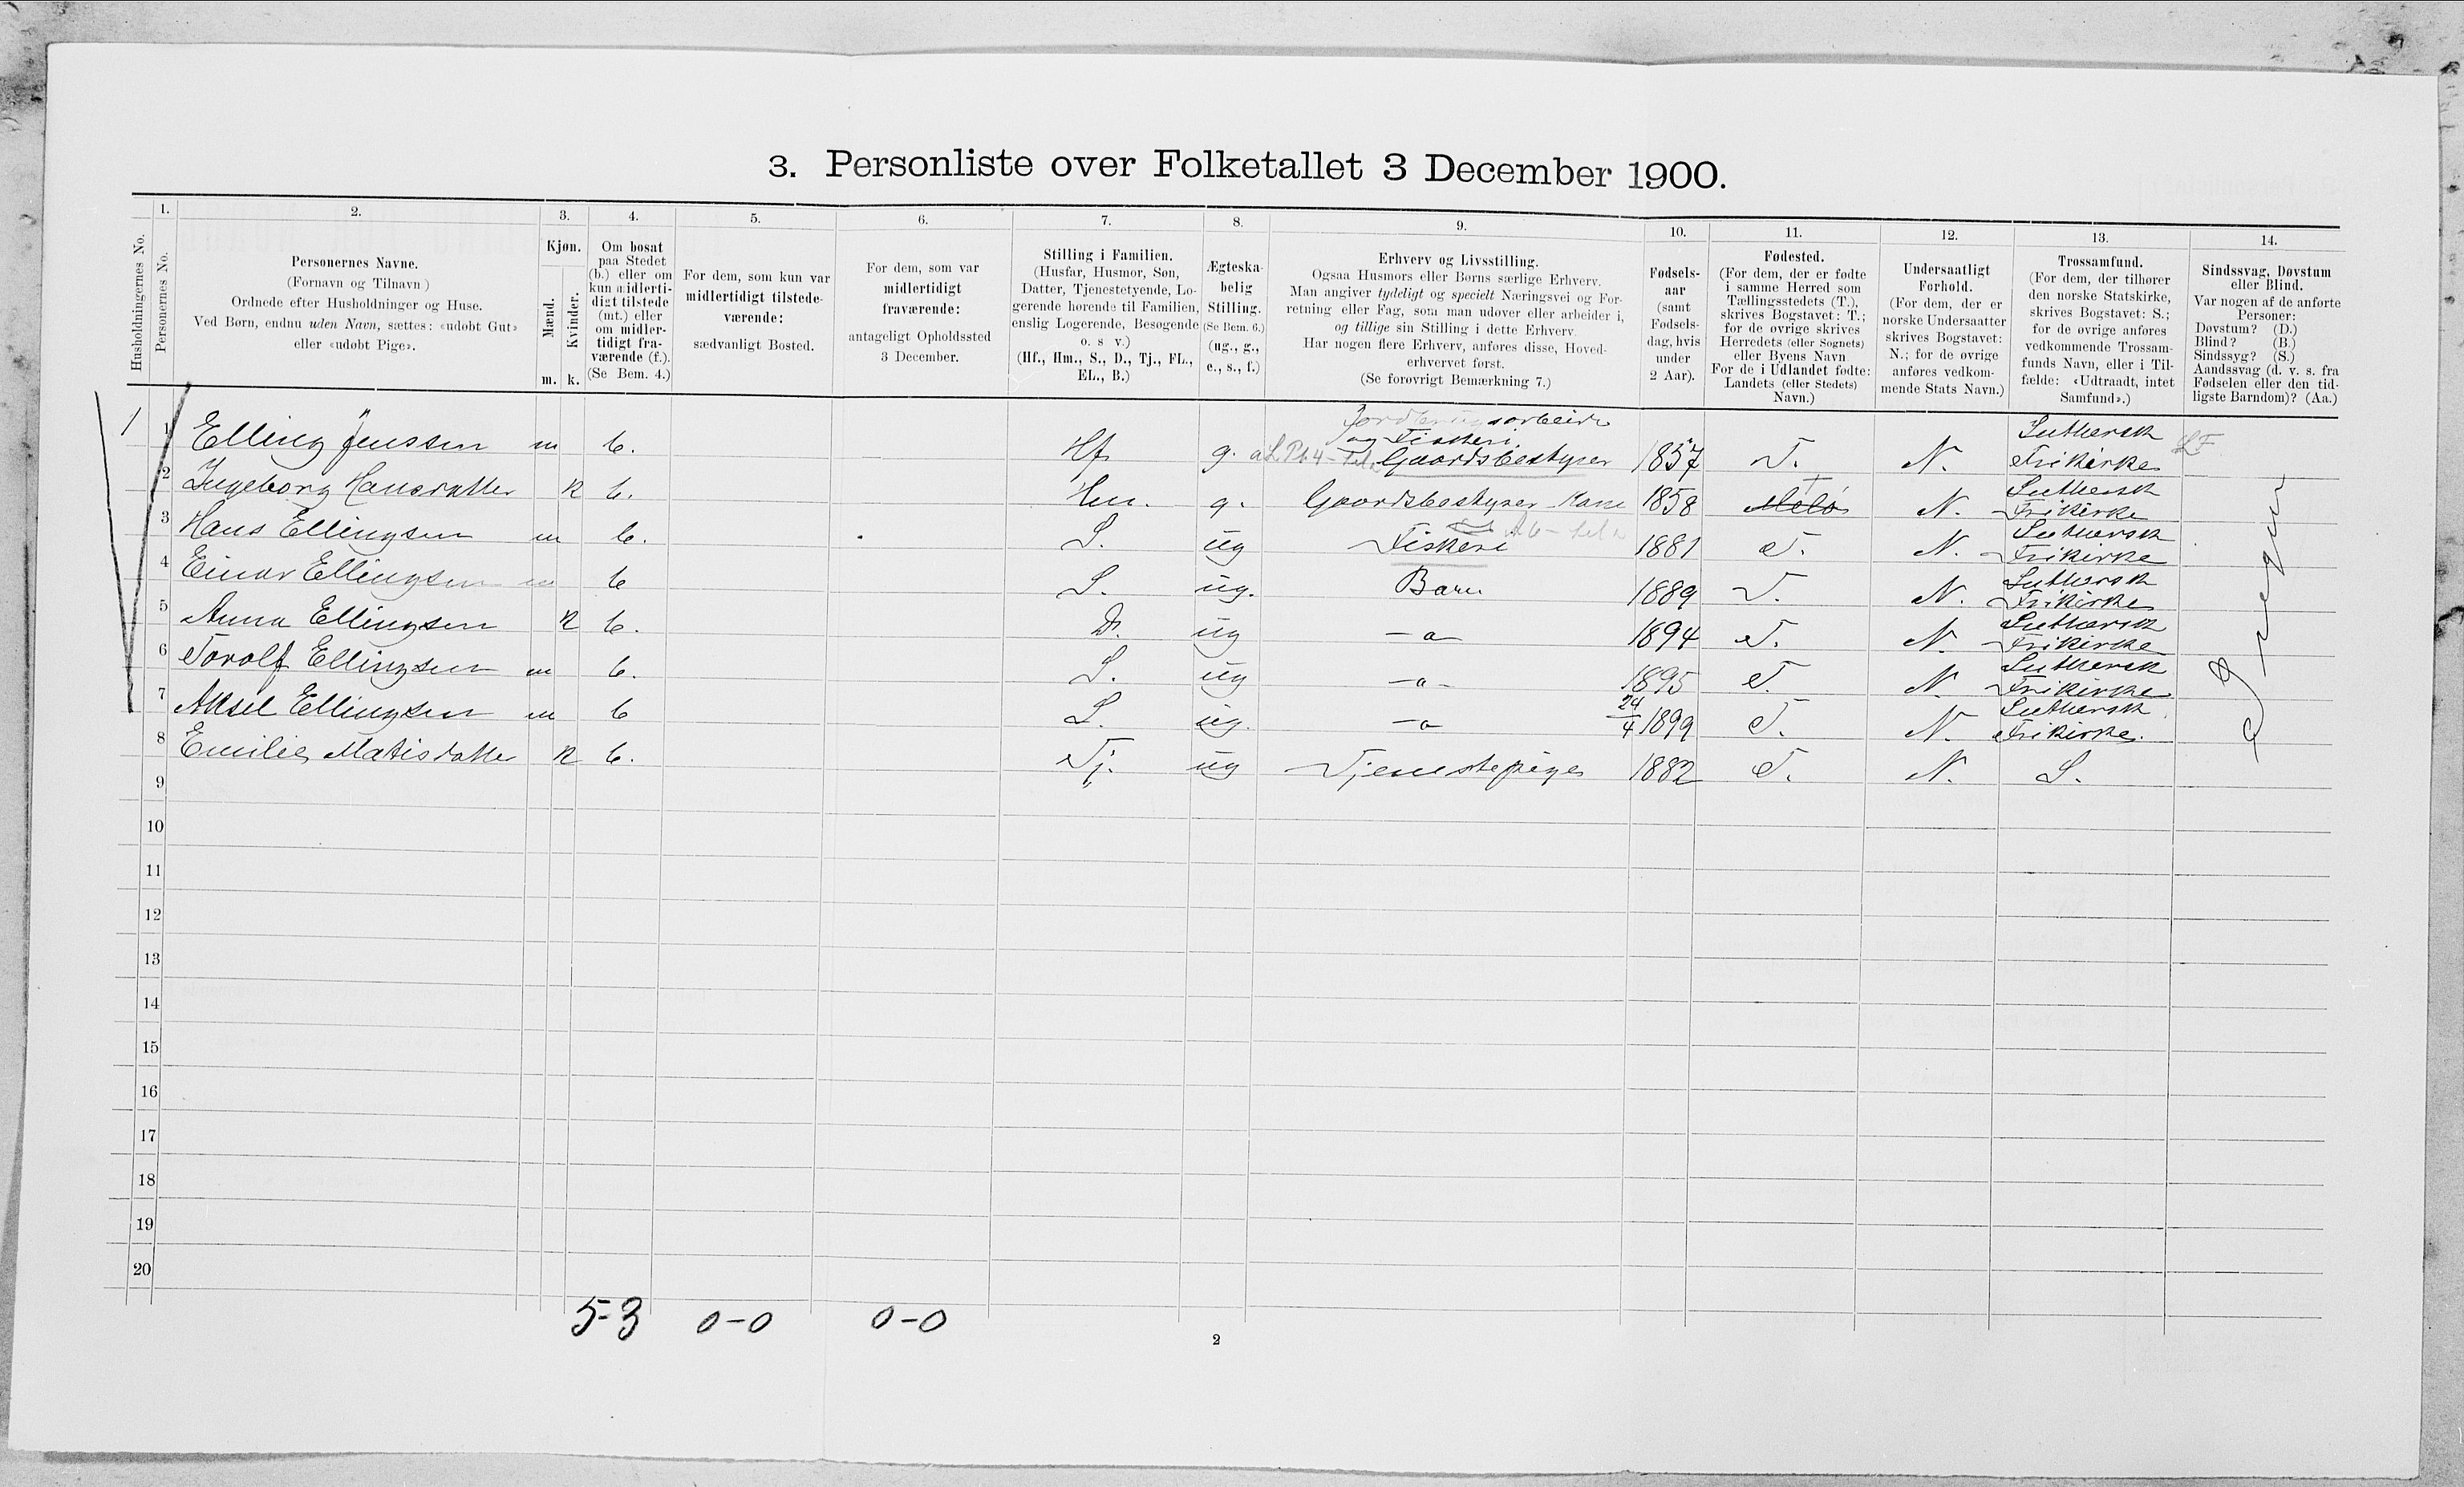 3. Personliste over Folketallet 3 December 1900.
1. 2. 3. 4. 5. 6. 7. 8. 9. 10. 11. 12. 13. 14.
Husholdningernes No.
Personernes No.
Personernes Navne.
(Fornavn og Tilnavn)
Ordnede efter Husholdninger og Huse.
Ved Børn, endnu uden Navn, sættes: «udøbt Gut»
eller «udøbt Pige».
Kjøn.
Mænd.
Kvinder.
m. k.
Om bosat
paa Stedet
(b.) eller om
kun midlerti-
digt tilstede
(mt.) eller
om midler-
tidigt fra-
værende (f.).
(Se Bem. 4.)
For dem, som kun var
midlertidigt tilstede-
værende:
sædvanligt Bosted.
For dem, som var
midlertidigt
fraværende:
antageligt Opholdssted
3 December.
Stilling i Familien.
(Husfar, Husmor, Søn,
Datter, Tjenestetyende, Lo-
gerende hørende til Familien,
enslig Logerende, Besøgende
o. s v.)
(Hf., Hm., S., D., Tj., FL.,
EL., B.)
Ægteska-
belig
Stilling.
(Se Bem. 6.)
(ug., g.,
e., s., f.)
Erhverv og Livsstilling.
Ogsaa Husmors eller Børns særlige Erhverv.
Man angiver tydeligt og specielt Næringsvei og For-
retning eller Fag, som man udøver eller arbeider i,
og tillige sin Stilling i dette Erhverv.
Har nogen flere Erhverv, anføres disse, Hoved-
erhvervet først.
(Se forøvrigt Bemærkning 7.)
Fødsels-
aar
(samt
Fødsels-
dag, hvis
under
2 Aar).
Fødested.
(For dem, der er fødte
i samme Herred som
Tællingsstedets (T.),
skrives Bogstavet: T.;
for de øvrige skrives
Herredets (eller Sognets)
eller Byens Navn
For de i Udlandet fødte:
Landets (eller Stedets)
Navn.)
Undersaatligt
Forhold.
(For dem, der er
norske Undersaatter
skrives Bogstavet:
N.; for de øvrige
anføres vedkom-
mende Stats Navn.)
Trossamfund.
(For dem, der tilhører
den norske Statskirke,
skrives Bogstavet: S.;
for de øvrige anføres
vedkommende Trossam-
funds Navn, eller i Til-
fælde: «Udtraadt, intet
Samfund».)
Sindssvag, Døvstum
eller Blind.
Var nogen af de anførte
Personer:
Døvstum? (D.)
Blind? (B.)
Sindssyg? (S.)
Aandssvag (d. v. s. fra
Fødselen eller den tid-
ligste Barndom)? (Aa.)
Jordbrugsarbeide Luthersk
og Fiskeri
1 1 Elling Jenssen m b. Hf g. Gaardsbestyrer 1857 T. N. Frikirke LF
2 Ingeborg Hansdatter k b. Hm. g. Gaardsbestyrer Kone 1858 Melø T N. Luthersk Frikirke
3 Hans Ellingsen m b. S. ug Fiskeri 1881 T. N. Luthersk Frikirke
4 Einar Ellingsen m b S. ug. Barn 1889 T. N. Luthersk Frikirke
5 Anna Ellingsen k b. D. ug -a- 1894 T. N. Luthersk Frikirke
6 Torolf Ellingsen m b. S. ug -a- 1895 T. N. Luthersk Frikirke
7 Aksel Ellingsen m b S. ug. -a 24/4 1899 T. N. Luthersk Frikirke.
8 Emilie Matisdatter k b. Tj. ug Tjenestepige 1882 T. N. S.
9
10
11
12
13
14
15
16
17
18
19
20
5-3 0-0 0-0
2